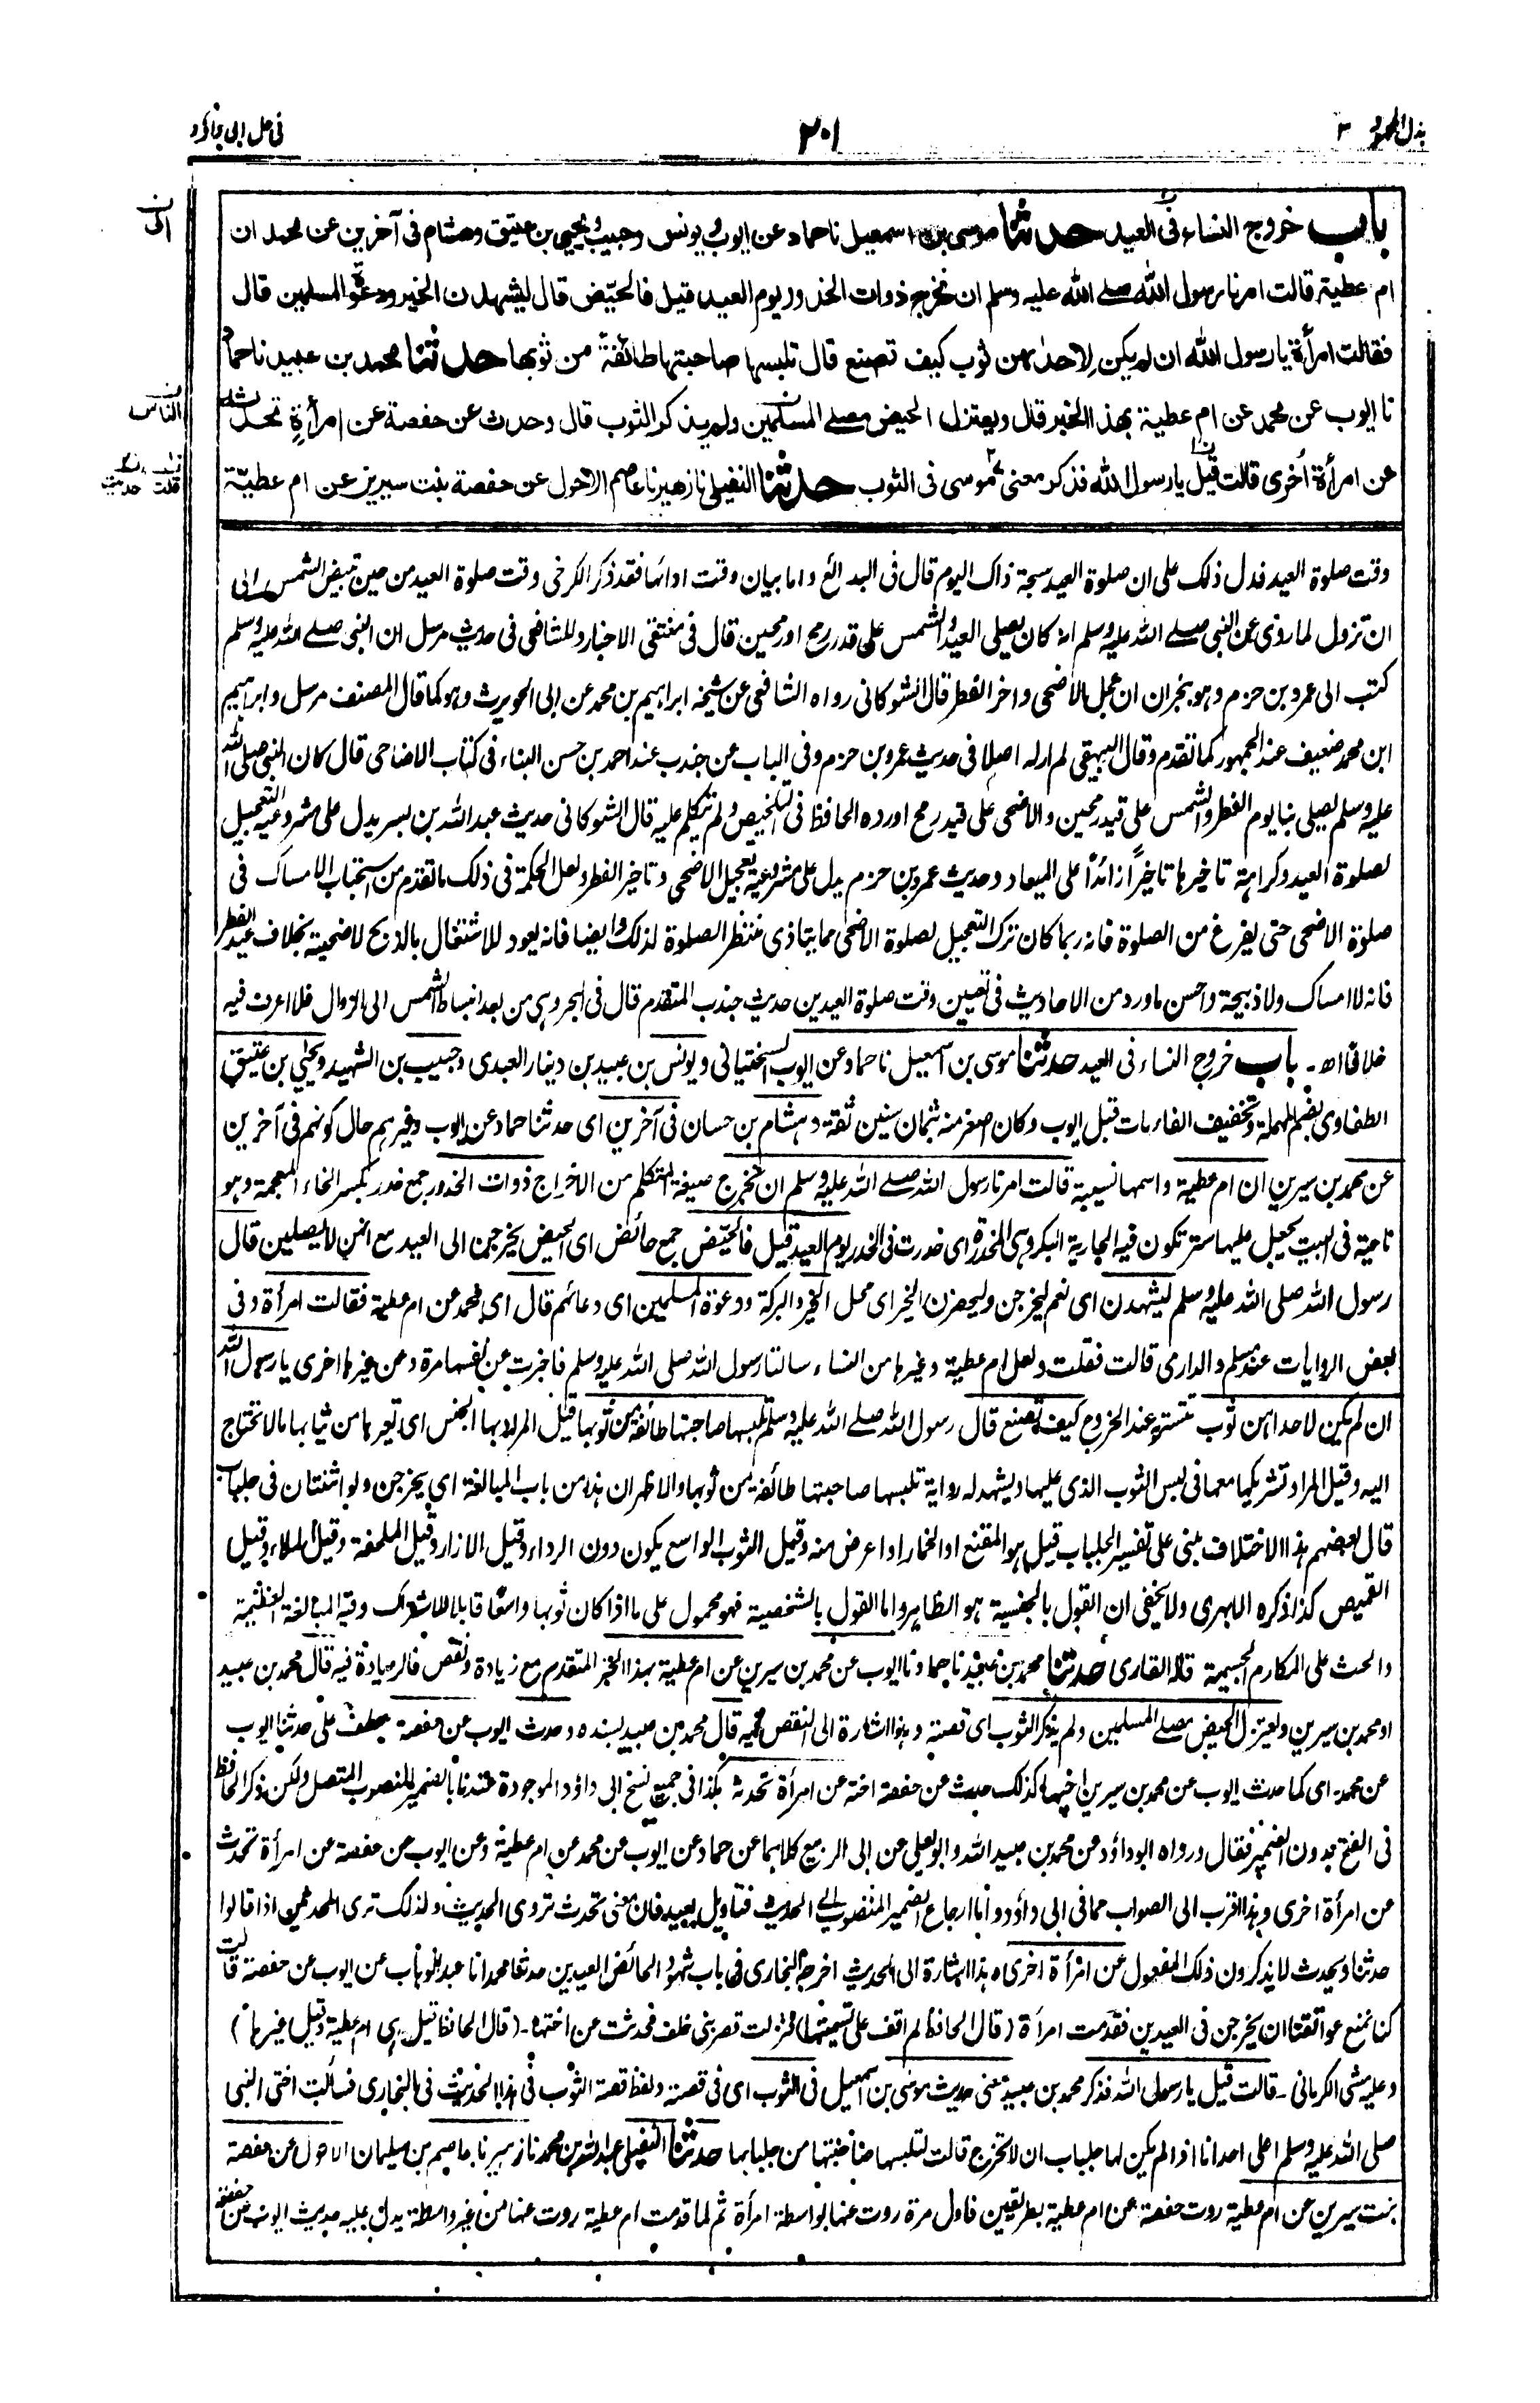 بذل المجهود ٣
٢٠١
فى حل ابى داؤد
باب خروج النساء فى العيد حدثنا موسى بن اسمعيل ناحماد عن ايوب ويونس وحبيب ويحيى بن عتيق وهشام فى آخرين عن محمد ان
ام عطية قالت امرنا رسول الله صلے الله عليه وسلم ان نخرج ذوات الخدور يوم العيد قيل فالحيّض قال ليشهدن الخير ودعوة المسلمين قال
فقالت امرأة يا رسول الله ان لم يكن لاحدٰهن ثوب كيف تصنع قال تلبسها صاحبتها طائفة من ثوبها حدثنا محمد بن عبيد ناحماد
نا ايوب عن محمد عن ام عطية بهذا الخبر قال ويعتزل الحيض مصلے المسلمين ولم يذكر الثوب قال وحدث عن حفصة عن امرأةٍ تحدثه
عن امرأة اُخرى قالت قيل يا رسول الله فذكر معنى موسى فى الثوب حدثنا النفيلى نا زهير نا عاصم الاحول عن حفصة بنت سيرين عن ام عطيّة
الى
الناس
قالت حديث
وقت صلوة العيد فدل ذلك على ان صلوة العيد سبحة ذاك اليوم قال فى البدائع واما بيان وقت ادائها فقد ذكر الكرخى وقت صلوة العيد من حين تبيض الشمس الى
ان تزول لما روى عن النبى صلے الله عليه وسلم انه كان يصلى العيد والشمس على قدر رمح او رمحين قال فى منتقى الاخبار وللشافعى فى حديث مرسل ان النبى صلے الله عليه وسلم
كتب الى عمرو بن حزم وهو بنجران ان عجل بالاضحى واخر الفطر قال الشوكانى رواه الشافعى عن شيخه ابراهيم بن محمد عن ابى الحويرث وهو كما قال المصنف مرسل وابراهيم
ابن محمد ضعيف عند الجمهور كما تقدم وقال البيهقى لم ار له اصلا فى حديث عمرو بن حزم وفى الباب عن جندب عند احمد بن حسن البناء فى كتاب الاضاحى قال كان النبى صلى الله
عليه وسلم يصلى بنا يوم الفطر والشمس على قيد رمحين والاضحى على قيد رمح اورده الحافظ فى التلخيص ولم يتكلم عليه قال الشوكانى حديث عبد الله بن بسر يدل على مشروعية التعجيل
لصلوة العيد وكراهة تاخيرها تاخيراً زائداً على الميعاد وحديث عمرو بن حزم يدل على مشروعية تعجيل الاضحى وتاخير الفطر ولعل الحكمة فى ذلك ما تقدم من استحباب الامساك فى
صلوة الاضحى حتى يفرغ من الصلوة فانه ربما كان ترك التعجيل لصلوة الاضحى مما يتاذى منتظر الصلوة لذلك وايضا فانه يعود للاشتغال بالذبح لاضحيته بخلاف عيد الفطر
فانه لا امساك ولا ذبيحة واحسن ما ورد من الاحاديث فى تعيين وقت صلوة العيدين حديث جندب المتقدم قال فى البحر وهى من بعد انبساط الشمس الى الزوال فلا اعرف فيه
خلافا اه۔ باب خروج النساء فى العيد حدثنا موسى بن اسمعيل ناحماد عن ايوب السختيانى ويونس بن عبيد بن دينار العبدى وحبيب بن الشهيد ويحيى بن عتيق
الطفاوى بضم المهملة وتخفيف الفاء مات قبل ايوب وكان اصغر منه بثمان سنين ثقة وهشام بن حسان فى آخرين اى حدثنا حماد عن ايوب وغيرهم حال كونهم فى آخرين
عن محمد بن سيرين ان ام عطية واسمها نسيبة قالت امرنا رسول الله صلے الله عليه وسلم ان نخرج صيغة المتكلم من الاخراج ذوات الخدور جمع خدر بكسر الخاء المعجمة وهو
ناحية فى البيت يجعل عليها ستر تكون فيه الجارية البكر وهى المخدرة اى خدرت فى الخدر يوم العيد قيل فالحيّض جمع حائض اى الحيض يخرجن الى العيد مع انهن لا يصلين قال
رسول الله صلى الله عليه وسلم ليشهدن اى نعم ليخرجن وليحضرن الخير اى محل الخير والبركة ودعوة المسلمين اى دعائهم قال اى محمد عن ام عطية فقالت امرأة وفى
بعض الروايات عند مسلم والدارى قالت فقلت ولعل ام عطية وغيرها من النساء سالتا رسول الله صلى الله عليه وسلم فاخبرت عن نفسها مرة وعن غيرها اخرى يا رسول الله
ان لم يكن لاحداهن ثوب تتستر به عند الخروج كيف تصنع قال رسول الله صلے الله عليه وسلم تلبسها صاحبتها طائفة من ثوبها قيل المراد بها الجنس اى تعيرها من ثيابها مالا تحتاج
اليه وقيل المراد تشريكها معها فى لبس الثوب الذى عليها ويشهد له رواية تلبسها صاحبتها طائفة من ثوبها والاظهر ان هذا من باب المبالغة اى يخرجن ولو اثنتان فى جلباب
قال بعضهم هذا الاختلاف مبنى على تفسير الجلباب قيل هو المقنع او الخمار او اعرض منه وقيل الثوب الواسع يكون دون الرداء وقيل الازار وقيل الملحفة وقيل الملاء وقيل
القميص كذا ذكره الابهرى ولا يخفى ان القول بالجنسية هو الظاهر واما القول بالشخصية فهو محمول على ما اذا كان ثوبها واسعًا قابلا للاشتراك وفيه المبالغة العظيمة
والحث على المكارم الجسيمة قاله القارى حدثنا محمد بن عبيد ناحماد نا ايوب عن محمد بن سيرين عن ام عطية بهذا الخبر المتقدم مع زيادة ونقص فالزيادة فيه قال محمد بن عبيد
او محمد بن سيرين ويعتزل الحيض مصلے المسلمين ولم يذكر الثوب اى قصته وهذا اشارة الى النقص فيه قال محمد بن عبيد بسنده وحدث ايوب عن حفصة عطف على حدثنا ايوب
عن محمد۔ اى كما حدث ايوب عن محمد بن سيرين اخيها كذلك حدث عن حفصة اخته عن امرأة تحدثه هكذا فى جميع نسخ ابى داؤد الموجودة عندنا بالضمير المنصوب المتصل ولكن ذكر الحافظ
فى الفتح بدون الضمير فقال ورواه ابو داؤد عن محمد بن عبيد الله وابو يعلى عن ابى الربيع كلاهما عن حماد عن ايوب عن محمد عن ام عطية وعن ايوب عن حفصة عن امرأة تحدث
عن امرأة اخرى وهذا اقرب الى الصواب مما فى ابى داؤد واما ارجاع الضمير المنصوب الى الحديث فتاويل بعيد فان معنى تحدث تروى الحديث ولذلك ترى المحدثين اذا قالوا
حدثنا ويحدث لا يذكرون ذلك المفعول عن امرأة اخرى ه هذا اشارة الى الحديث اخرجه البخارى فى باب شهود الحائض العيدين حدثنا محمد انا عبد الوهاب عن ايوب عن حفصة قالت
كنا نمنع عواتقنا ان يخرجن فى العيدين فقدمت امرأة (قال الحافظ لم اقف على تسميتها) فنزلت قصر بنى خلف فحدثت عن اختها۔ (قال الحافظ قيل هى ام عطية وقيل غيرها)
وعليه مشى الكرمانى۔ قالت قيل يا رسول الله فذكر محمد بن عبيد معنى حديث موسى بن اسمعيل فى الثوب اى فى قصته ولفظ قصة الثوب فى هذا الحديث فى البخارى فسألت اختى النبى
صلى الله عليه وسلم اعلى احدانا اذا لم يكن لها جلباب ان لا تخرج قالت لتلبسها صاحبتها من جلبابها حدثنا النفيلى عبد الله بن محمد نا زهير نا عاصم بن سليمان الاحول عن حفصة
بنت سيرين عن ام عطية روت حفصة عن ام عطية بطريقين فاول مرة روت عنها بواسطة امرأة ثم لما قدمت ام عطية روت عنها من غير واسطة يدل عليه حديث ايوب عن حفصة